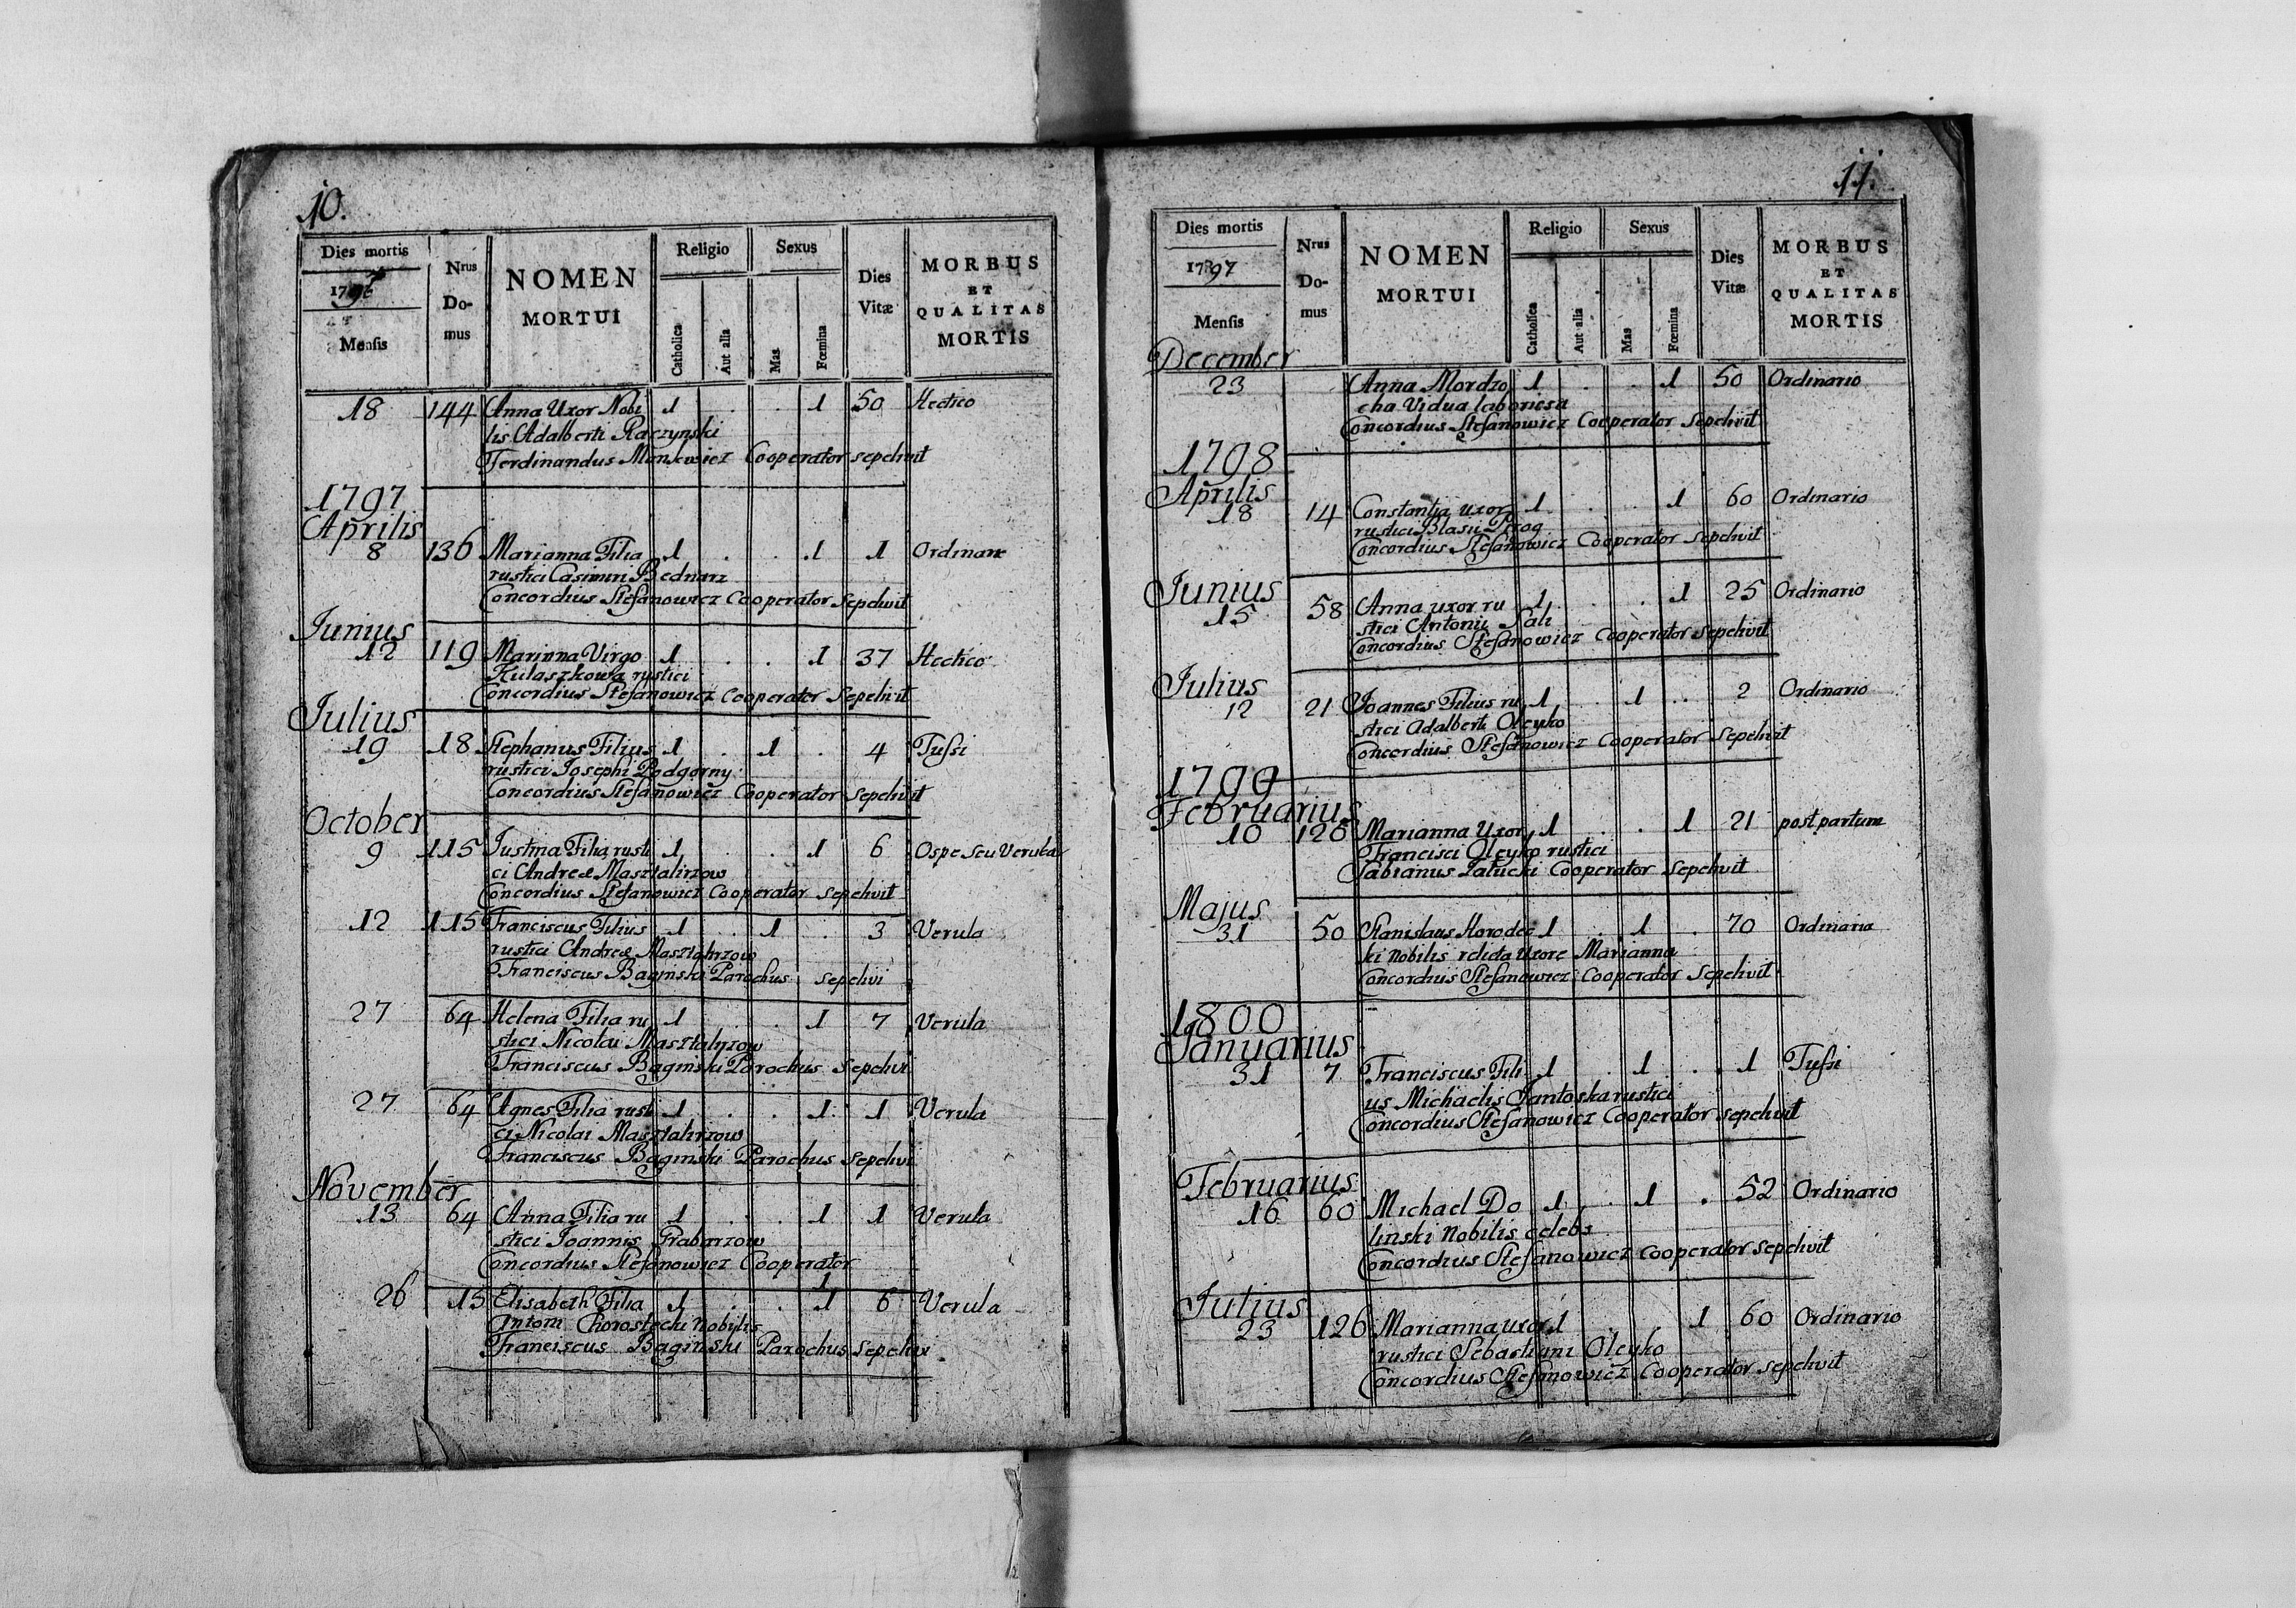 10.
Dies mortis
Nrus Domus
NOMEN MORTUI
Religio
Catholica
Aut alia
Sexus
Mas
Fœmina
Dies Vitæ
MORBUS ET QUALITAS MORTIS
Mensis
18 144 Anna Uxor Nobi 1 . . 1 50 Hectico
lis Adalberti Raczynski
Ferdinandus Cooperator sepelivit
1797
Aprilis
8 136 Marianna Filia 1 . . 1 1 Ordinare
rustici Casimiri Bednarz
Concordius Stefanowicz Cooperator Sepelivit
Junius
12 119 Marinna Virgo 1 . . 1 37 Hectico
Kulaszkowa rustici
Concordius Stefanowicz Cooperator Sepelivit
Julius
19 18 Stephanus Filius 1 . 1 . 4 Tussi
rustici Josephi Podgorny
Concordius Stefanowicz Cooperator Sepelivit
October
9 115 Justina Filia rusti 1 . . 1 6 Ospe Seu Verula
ci Andreæ Masztalirzow
Concordius Stefanowicz Cooperator sepelivit
12 115 Franciscus Filius 1 . 1 . 3 Verula
rustici Andreæ Masztalirzow
Franciscus Baginski Parochus sepelivi
27 64 Helena Filia ru 1 . . 1 7 Verula
stici Nicolai Masztalirzow
Franciscus Baginski Parochus Sepelivi
27 64 Agnes Filia rusti 1 . . 1 1 Verula
ci Nicolai Masztalirzow
Franciscus Baginski Parochus Sepelivi
November
13 64 Anna Filia ru 1 . . 1 1 Verula
stici Joannis Grabarzow
Concordius Stefanowicz Cooperator
1
26 15 Elisabeth Filia 1 . . 1 6 Verula
Antoni Chorostecki Nobilis
Franciscus Baginski Parochus Sepelivi
11.
Dies mortis
1797
Mensis
Nrus Domus
NOMEN MORTUI
Religio
Catholica
Aut alia
Sexus
Mas
Fœmina
Dies Vitæ
MORBUS ET QUALITAS MORTIS
December
23 Anna Mordzo 1 . . 1 50 Ordinario
cha Vidua laboriosa
Concordius Stefanowicz Cooperator Sepelivit
1798
Aprilis
18 14 Constantia uxor 1 . . 1 60 Ordinario
rustici Blasii Pirog
Concordius Stefanowicz Cooperator Sepelivit
Junius
15 58 Anna uxor ru 1 . . 1 25 Ordinario
stici Antonii
Concordius Stefanowicz Cooperator Sepelivit
Julius
12 21 Joannes Filius ru 1 . 1 . . 2 Ordinario
stici Adalberti Oleyko
Concordius Stefanowicz Cooperator Sepelivit
1799
Februarius
10 126 Marianna Uxor 1 . . 1 21 post partum
Francisci Oleyko rustici
Fabianus Cooperator Sepelivit
Majus
31 50 Stanislaus Horodec 1 . 1 . 70 Ordinaria
ki Nobilis relicta Uxore Marianna
Concordius Stefanowicz Cooperator Sepelivit
1800
Januarius
31 7 Franciscus Fili 1 . 1 . . 1 Tussi
us Michaelis Jantoska rustici
Concordius Stefanowicz Cooperator sepelivit
Februarius
16 60 Michael Do 1 . 1 . 52 Ordinario
linski Nobilis celebs
Concordius Stefanowicz Cooperator sepelivit
Julius
23 126 Marianna uxor 1 . . 1 60 Ordinario
rustici Sebastiani Oleyko
Concordius Stefanowicz Cooperator sepelivit